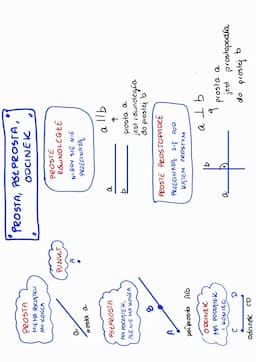 PROSTA, PÓŁPROSTA,
ODCINEK
PROSTA
NIE MA POCZĄTKU
ANI KOŃCA
prosta a
PUNKT
A
PÓŁPROSTA
MA POCZĄTEK,
ALE NIE MA KOŃCA
A
B
półprosta AB
ODCINEK
MA POCZĄTEK
I KONIEC
C
D
odcinek CD
PROSTE
RÓWNOLEGŁE
NIGDY SIĘ NIE
PRZECINAJĄ
a
b
a || b
prosta a
jest równoległa
do prostej b
PROSTE PROSTOPADŁE
PRZECINAJĄ SIĘ POD
KĄTEM PROSTYM
a
b
a ⊥ b
prosta a
jest prostopadła
do prostej b